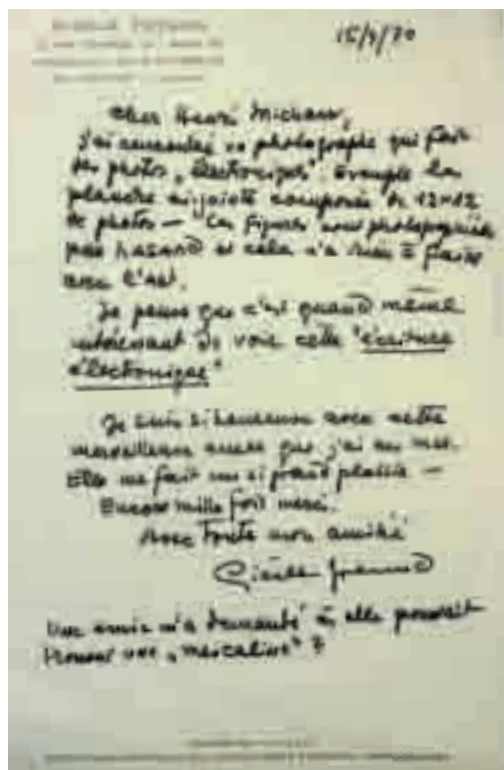 15/4/70
Cher Henri Michaux,
J'ai rencontré un photographe qui fait
des photos „électroniques" Exemple la
planche ci-jointe composée de 12x12
de photos — Les figures sont photographiées
par hasard et cela n'a rien à faire
avec l'art.
Je pense que c'est quand même
intéressant de voir cette "écriture
électronique"
Je suis si heureuse avec cette
merveilleuse que j'ai
Elle me fait un si grand plaisir —
Encore mille fois merci.
Avec toute mon amitié
Gisèle Freund
Une amie m'a demandé si elle pouvait
trouver une „mescaline" ?